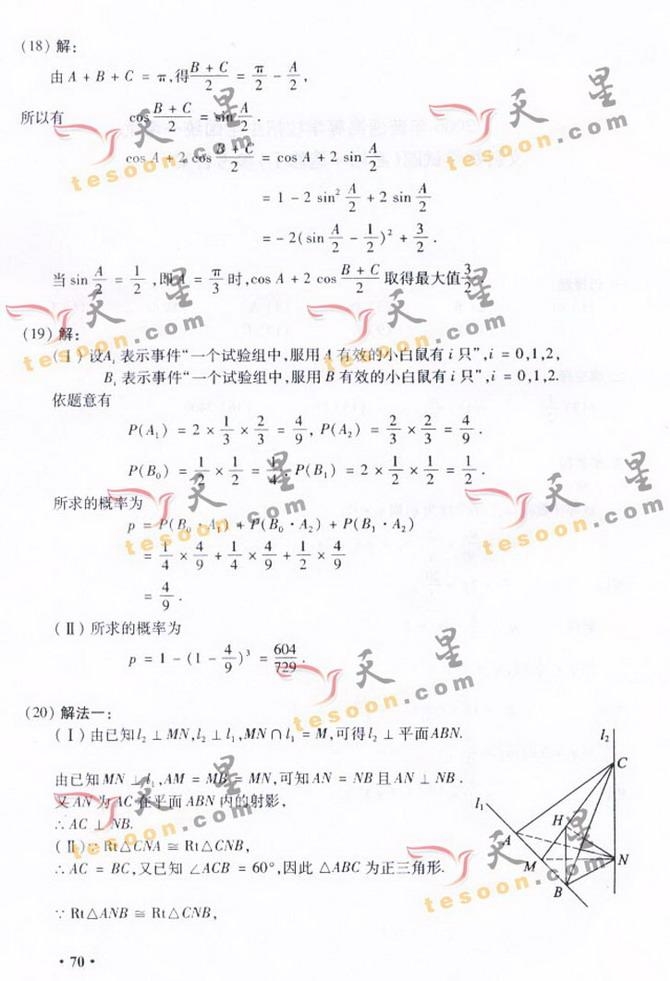 (18) 解:
由 A + B + C = π, 得 (B + C)/2 = π/2 - A/2,
所以有 cos (B + C)/2 = sin A/2.
cos A + 2 cos (B + C)/2 = cos A + 2 sin A/2
= 1 - 2 sin² A/2 + 2 sin A/2
= -2(sin A/2 - 1/2)² + 3/2.
当 sin A/2 = 1/2, 即 A = π/3 时, cos A + 2 cos (B + C)/2 取得最大值 3/2.
(19) 解:
(Ⅰ) 设 Aᵢ 表示事件“一个试验组中,服用 A 有效的小白鼠有 i 只”, i = 0,1,2,
Bᵢ 表示事件“一个试验组中,服用 B 有效的小白鼠有 i 只”, i = 0,1,2.
依题意有
P(A₁) = 2 × 1/3 × 2/3 = 4/9, P(A₂) = 2/3 × 2/3 = 4/9.
P(B₀) = 1/2 × 1/2 = 1/4, P(B₁) = 2 × 1/2 × 1/2 = 1/2.
所求的概率为
p = P(B₀ · A₁) + P(B₀ · A₂) + P(B₁ · A₂)
= 1/4 × 4/9 + 1/4 × 4/9 + 1/2 × 4/9
= 4/9.
(Ⅱ) 所求的概率为
p = 1 - (1 - 4/9)³ = 604/729.
(20) 解法一:
(Ⅰ) 由已知 l₂ ⊥ MN, l₂ ⊥ l₁, MN ∩ l₁ = M, 可得 l₂ ⊥ 平面 ABN.
由已知 MN ⊥ l₁, AM = MB = MN, 可知 AN = NB 且 AN ⊥ NB.
又 AN 为 AC 在平面 ABN 内的射影,
∴ AC ⊥ NB.
(Ⅱ) ∵ Rt△CNA ≌ Rt△CNB,
∴ AC = BC, 又已知 ∠ACB = 60°, 因此 △ABC 为正三角形.
∵ Rt△ANB ≌ Rt△CNB,
l₂
C
l₁
H
A
M
N
B
· 70 ·
天星
tesoon.com
天星
tesoon.com
天星
tesoon.com
天星
tesoon.com
天星
tesoon.com
天星
tesoon.com
天星
tesoon.com
天星
tesoon.com
天星
tesoon.com